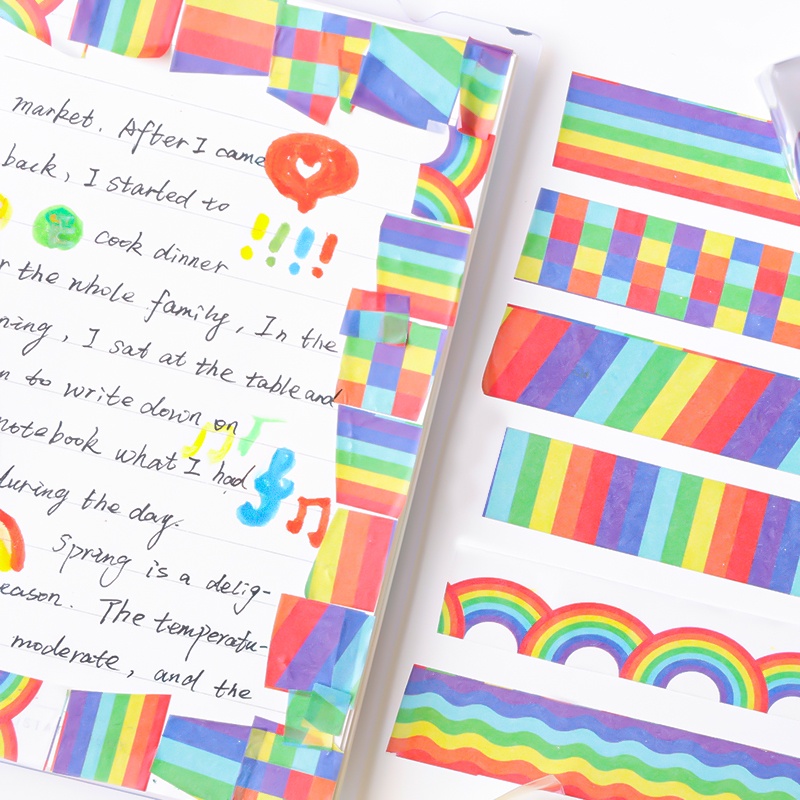 market. After I came
back, I started to
cook dinner
the whole family, In the
I sat at the table and
to write down on
notebook what I had
during the day.
Spring is a delig-
The temperatu-
moderate, and the